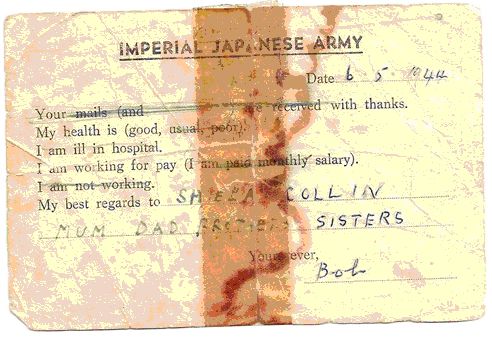 IMPERIAL JAPANESE ARMY
Date 6 5 1944
Your mails (and are received with thanks.
My health is (good, usual, poor).
I am ill in hospital.
I am working for pay (I am paid monthly salary).
I am not working.
My best regards to SHIELA COLLIN
MUM DAD BROTHERS SISTERS
Yours ever,
Bob